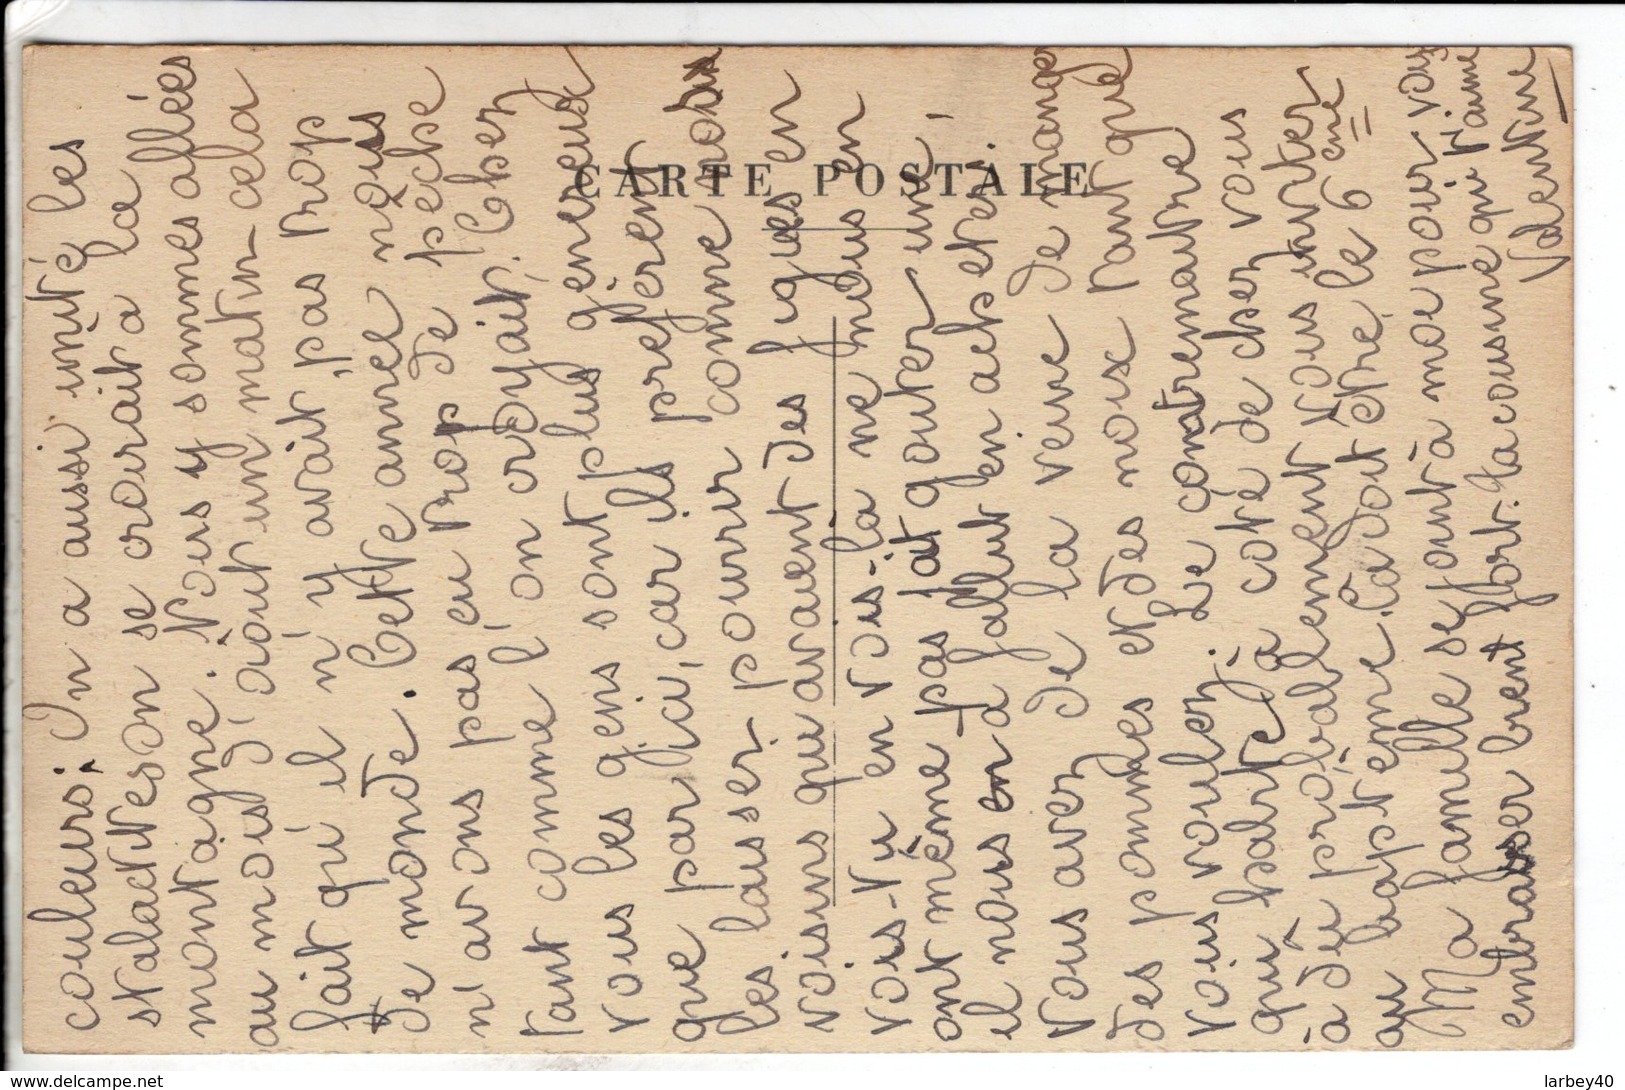 couleurs. On a aussi imité les
stalactites on se croirait à la
montagne. Nous y sommes allées
au mois d'août un matin cela
fait qu'il n'y avait pas trop
de monde. Cette année nous
n'avons pas eu trop de pêche
tant comme l'on croyait. Chez
vous les gens sont plus généreux
que par ici, car ils préfèrent
les laisser pourrir comme nos
voisins qui avaient des figues en
veux-tu en vois-la ne nous en
ont même pas fait gouter une,
il nous en a fallut en acheter.
Vous avez de la veine de manger
des pommes et des noix tant que
vous voulez. Le contremaitre
qui habite à coté de chez vous
a dû probablement vous inviter
au baptême. Ca doit être le 6 eme
Ma famille se joint à moi pour vous
embrasser bien fort. Ta cousine qui t'aime
Valentine
CARTE POSTALE
delcampe.net
larbey40